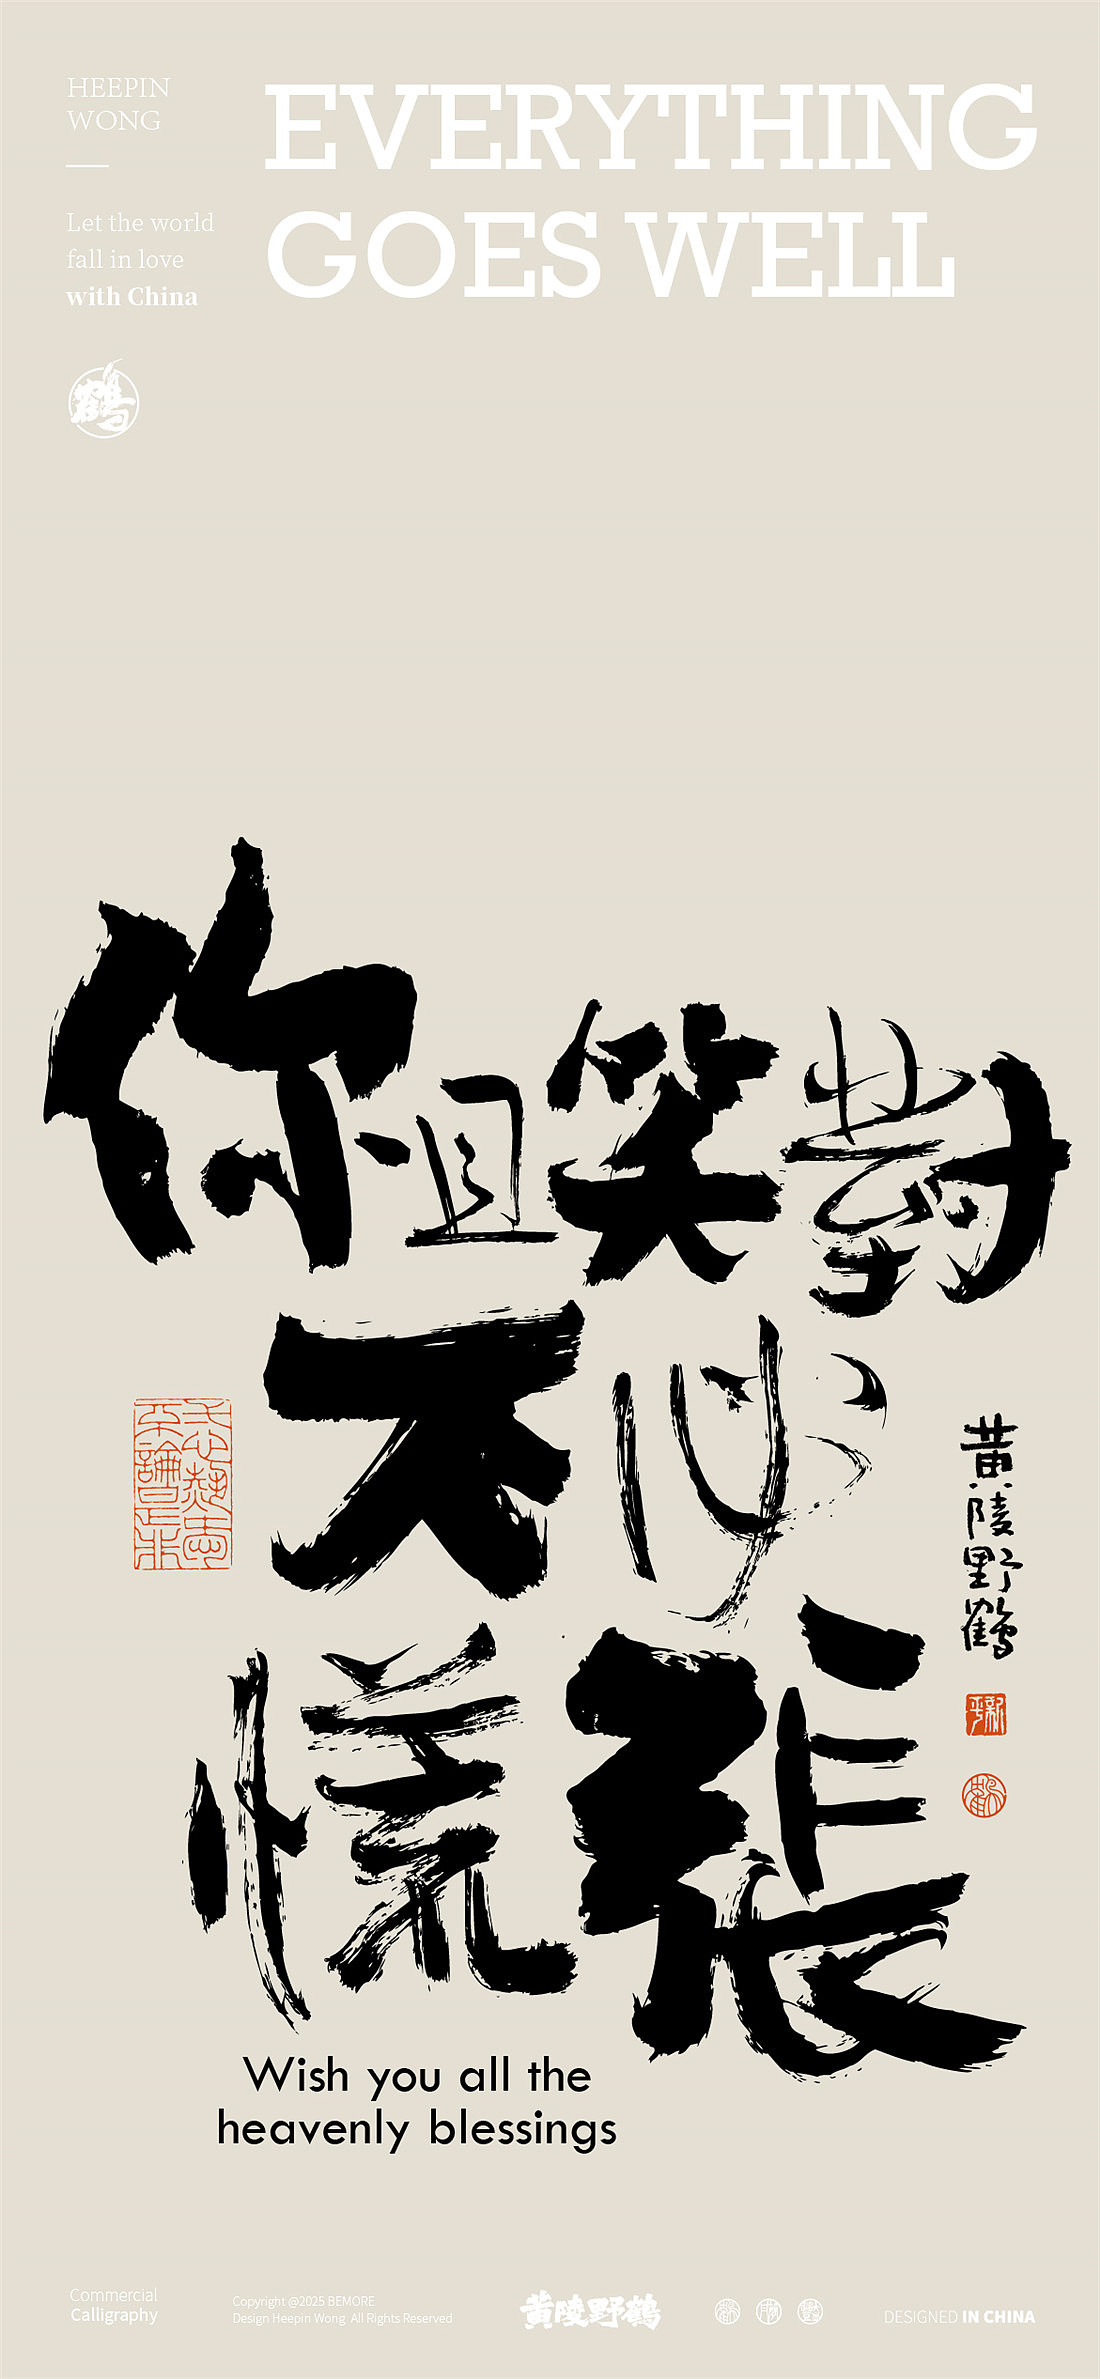 HEEPIN
WONG
Let the world
fall in love
with China
鶴
EVERYTHING
GOES WELL
你且笑對
不必
慌張
黄陵野鶴
Wish you all the
heavenly blessings
Commercial
Calligraphy
Copyright @2025 BEMORE
Design Heepin Wong All Rights Reserved
黄陵野鶴
DESIGNED IN CHINA